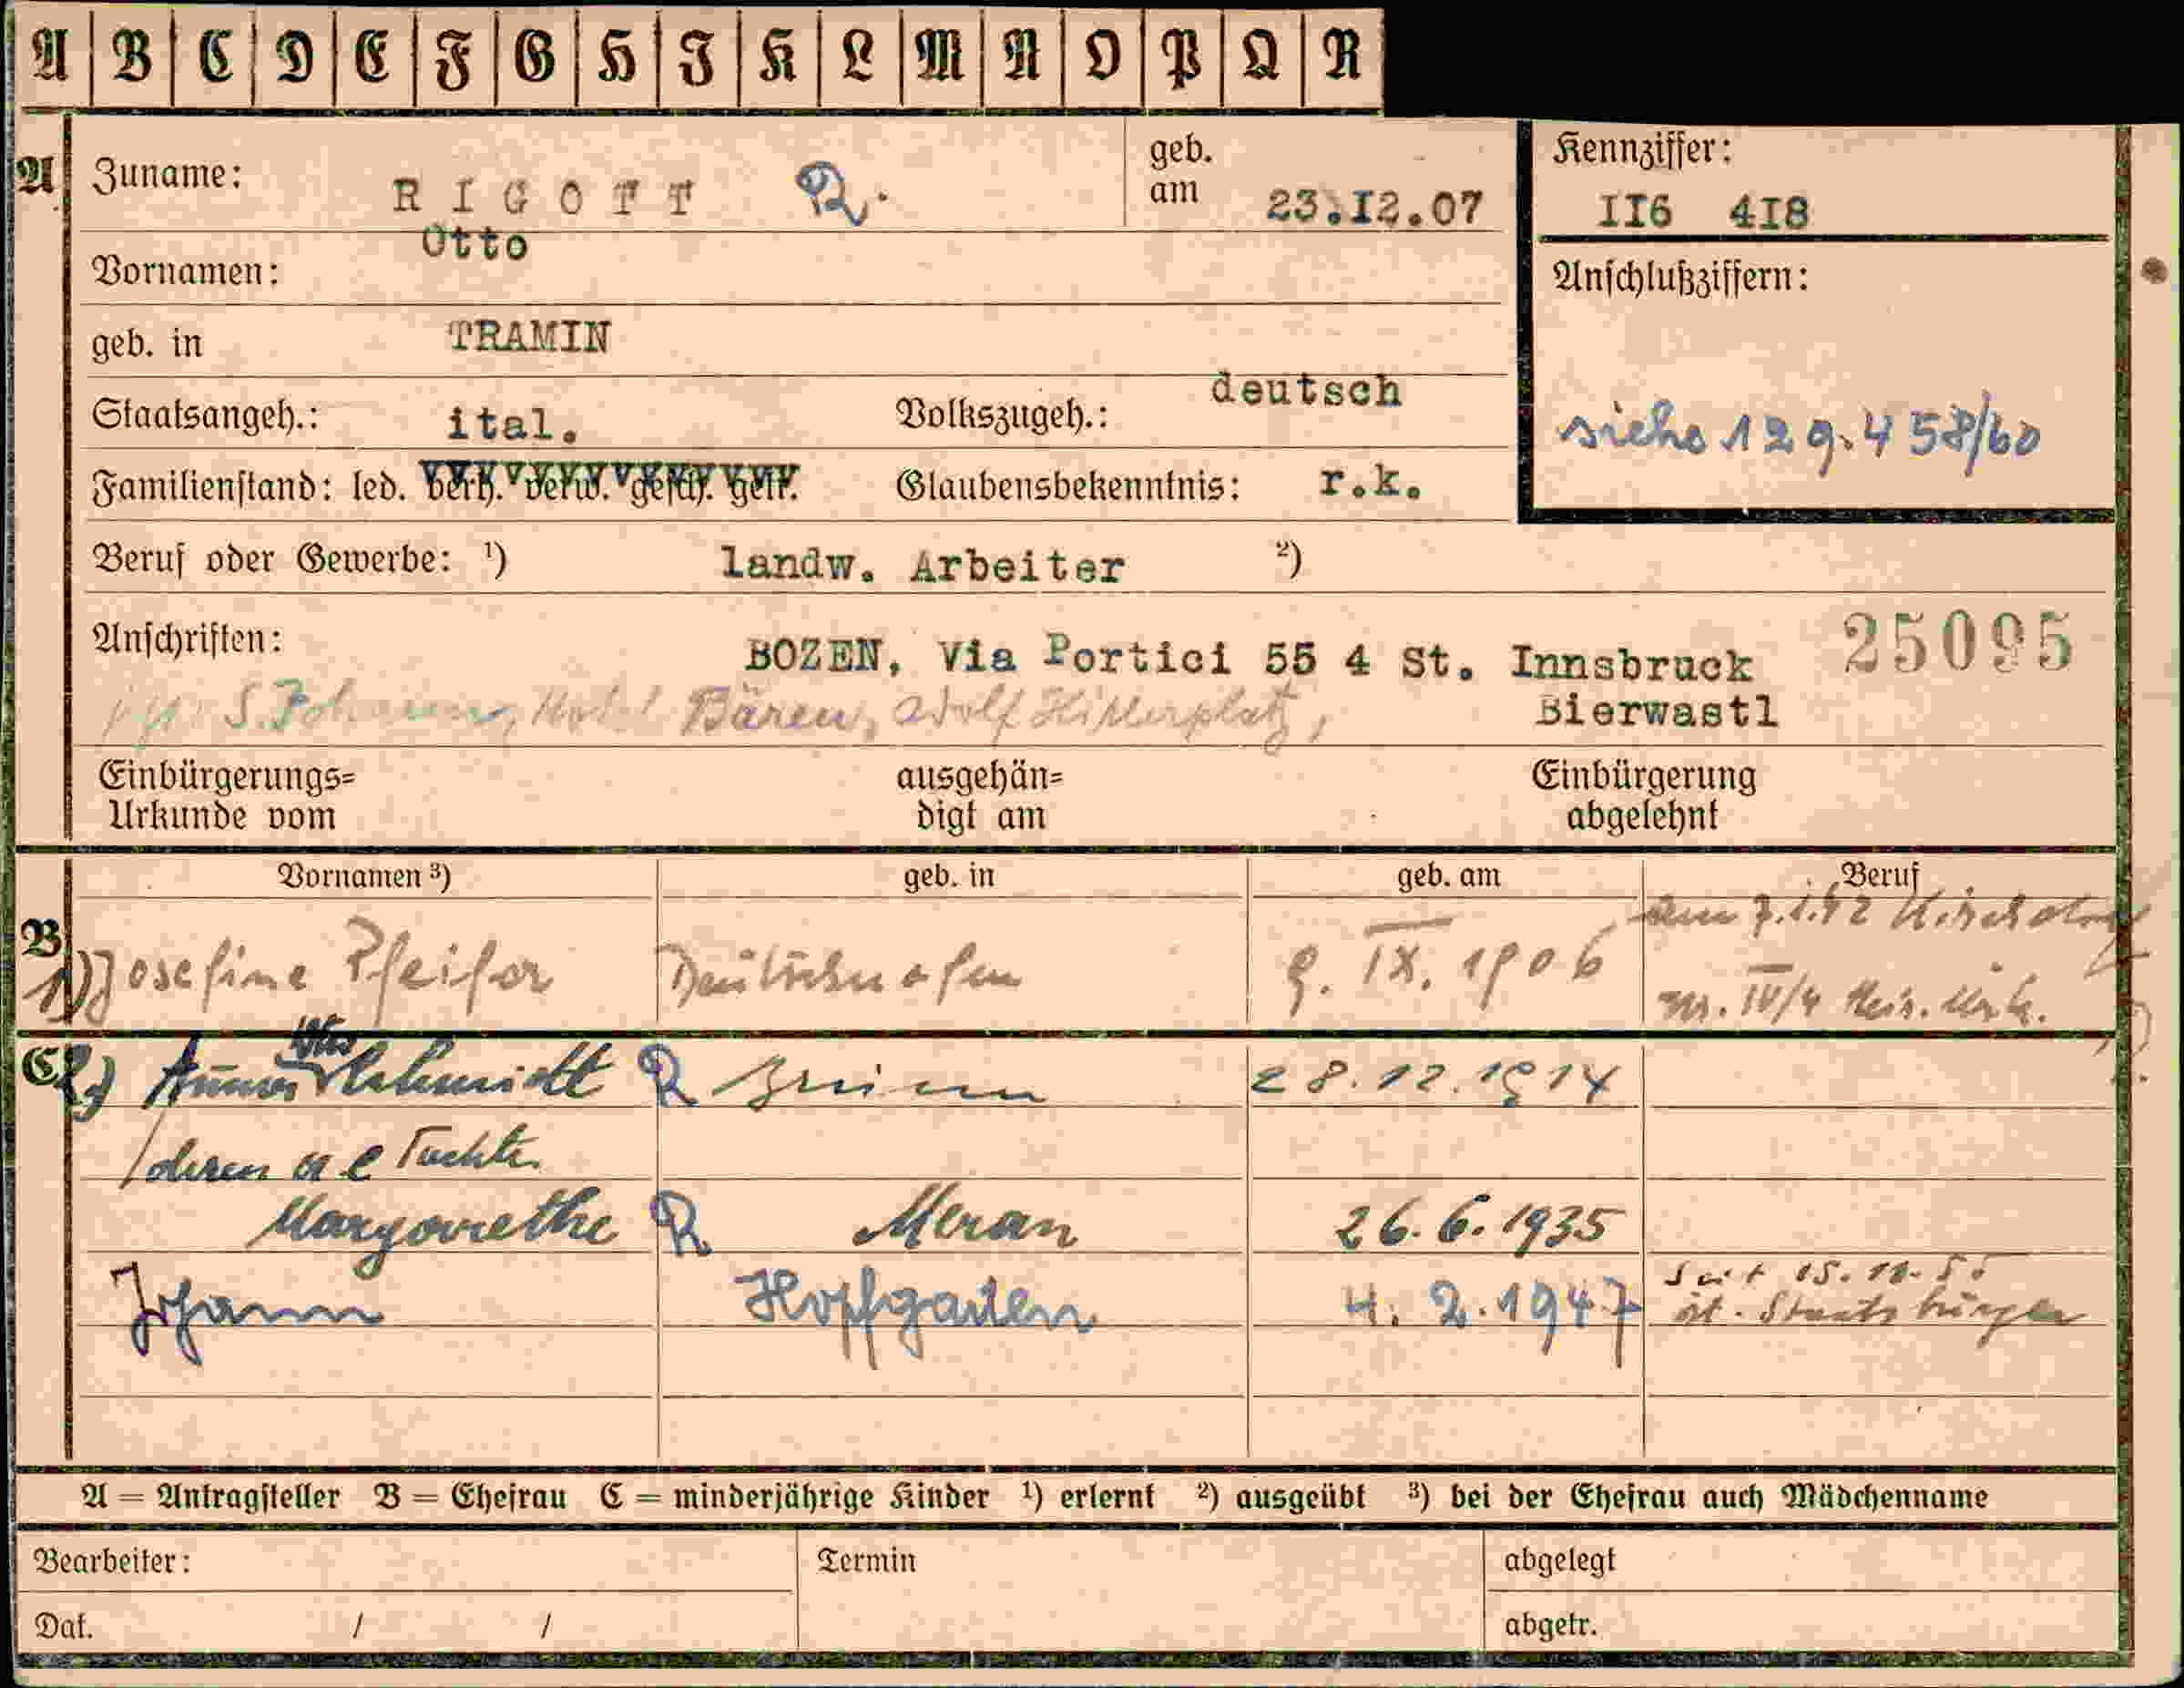 A B C D E F G H I K L M N O P Q R
A Zuname: RIGOTT R. geb. am 23.I2.07
Kennziffer: II6 4I8
Vornamen: Otto
Anschlußziffern:
geb. in TRAMIN
Staatsangeh.: ital. Volkszugeh.: deutsch
siehe 129.458/60
Familienstand: led. verh. verw. gesch. getr. Glaubensbekenntnis: r.k.
Beruf oder Gewerbe: ¹) landw. Arbeiter ²)
Anschriften: BOZEN, Via Portici 55 4 St. Innsbruck 25095
S. Johann, Hotel Bären, Adolf Hitlerplatz, Bierwastl
Einbürgerungs= ausgehän= Einbürgerung
Urkunde vom digt am abgelehnt
Vornamen ³) geb. in geb. am Beruf
am 7.1.42
B 1) Josefine Pfeifer Deutschnofen 9. IX. 1906
nr. IV/4 Heir. Urk.
C 2) Anna Schmidt R Brixen 28.12.1914
deren Tochter
Margarethe R Meran 26.6.1935
Johann Hopfgarten 4. 2. 1947
seit
öst. Staatsbürger
A = Antragsteller B = Ehefrau C = minderjährige Kinder ¹) erlernt ²) ausgeübt ³) bei der Ehefrau auch Mädchenname
Bearbeiter: Termin abgelegt
Dat. / / abgetr.